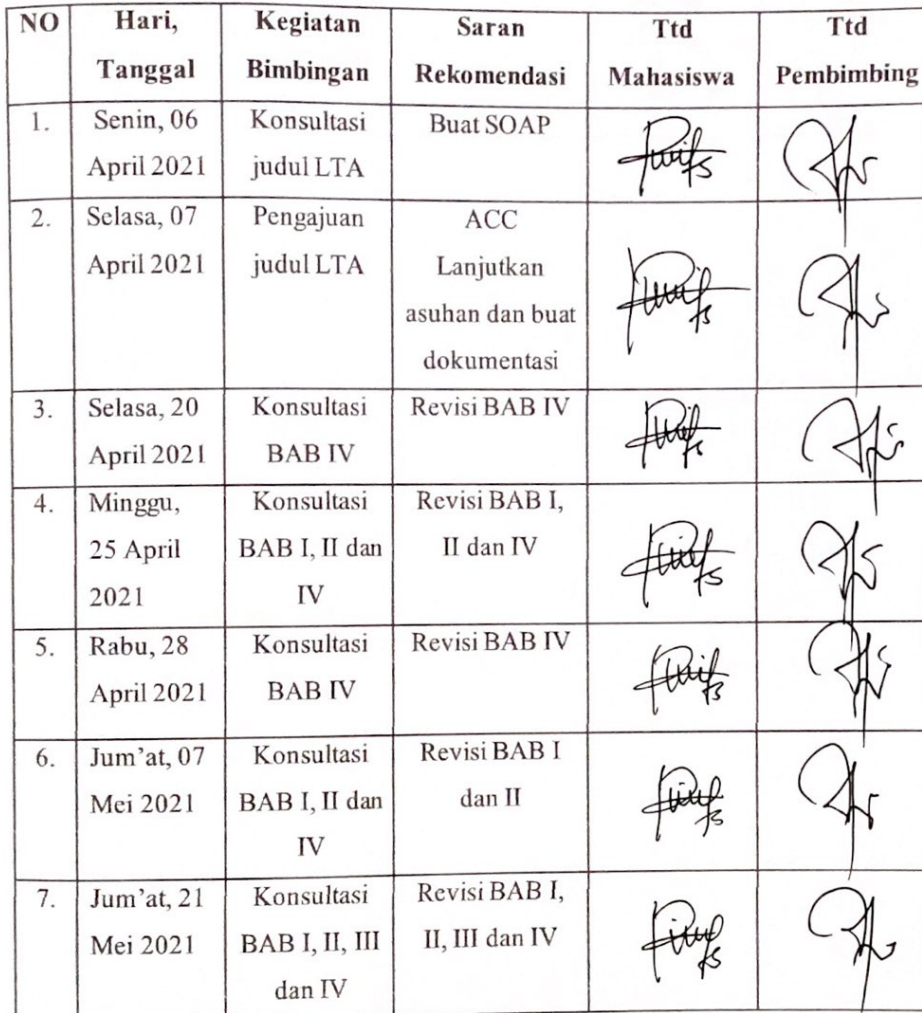 NO
Hari,
Tanggal
Kegiatan
Bimbingan
Saran
Rekomendasi
Ttd
Mahasiswa
Ttd
Pembimbing
1.
Senin, 06
April 2021
Konsultasi
judul LTA
Buat SOAP
2.
Selasa, 07
April 2021
Pengajuan
judul LTA
ACC
Lanjutkan
asuhan dan buat
dokumentasi
3.
Selasa, 20
April 2021
Konsultasi
BAB IV
Revisi BAB IV
4.
Minggu,
25 April
2021
Konsultasi
BAB I, II dan
IV
Revisi BAB I,
II dan IV
5.
Rabu, 28
April 2021
Konsultasi
BAB IV
Revisi BAB IV
6.
Jum'at, 07
Mei 2021
Konsultasi
BAB I, II dan
IV
Revisi BAB I
dan II
7.
Jum'at, 21
Mei 2021
Konsultasi
BAB I, II, III
dan IV
Revisi BAB I,
II, III dan IV